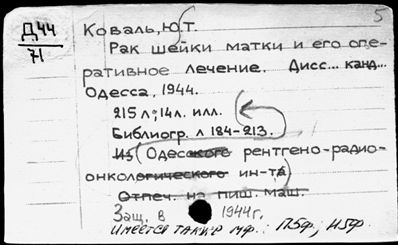 5
Д44
71
Коваль, Ю.Т.
Рак шейки матки и его опе-
ративное лечение. Дисс... канд...
Одесса, 1944.
215 л; 14 л. илл.
Библиогр. л 184-213.
Из Одесского рентгено-радио-
онкологического ин-та
Отпеч. на пиш. маш.
Защ. в 1944г.
Имеется также мф.: П5Ф,